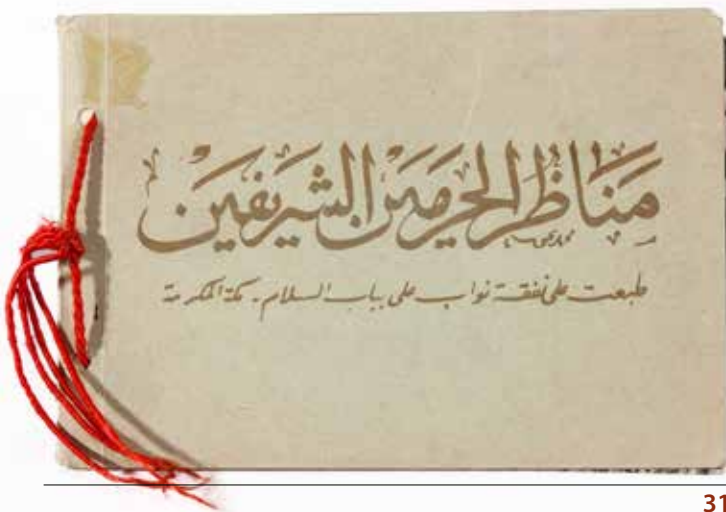 مناظر الحرمين الشريفين
طبعت على نفقة نواب على بباب السلام - مكة المكرمة
31